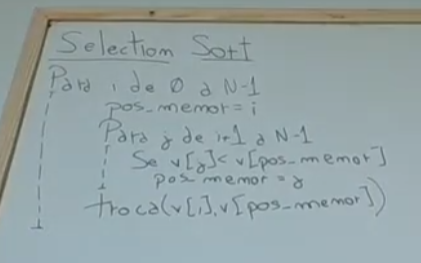 Selection Sort
Para i de 0 a N-1
pos_menor = i
Para j de i+1 a N-1
Se v[j] < v[pos_menor]
pos_menor = j
troca(v[i], v[pos_menor])